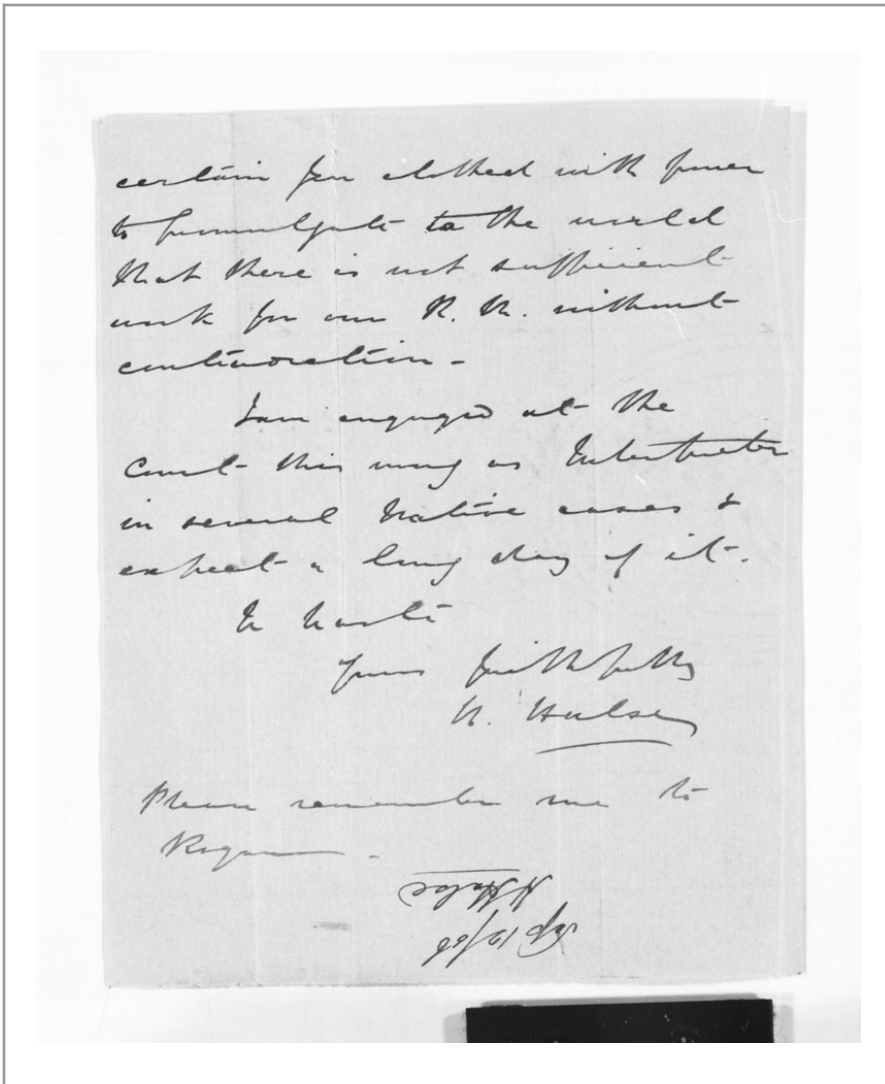 certain few clothed with power
to promulgate to the world
that there is not sufficient
work for our R. M. without
continuation -
I am engaged at the
Court this morng as Interpreter
in several Native cases &
expect a long day of it.
In haste
Yours faithfully
H. Halse
Please remember me to
Rogan -
H Halse
Sep 12/66